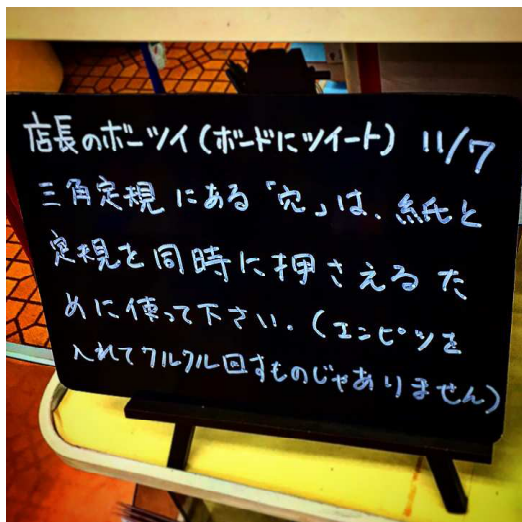 店長のボーツイ(ボードにツイート) 11/7
三角定規にある「穴」は、紙と
定規を同時に押さえるた
めに使って下さい。(エンピツを
入れてクルクル回すものじゃありません)